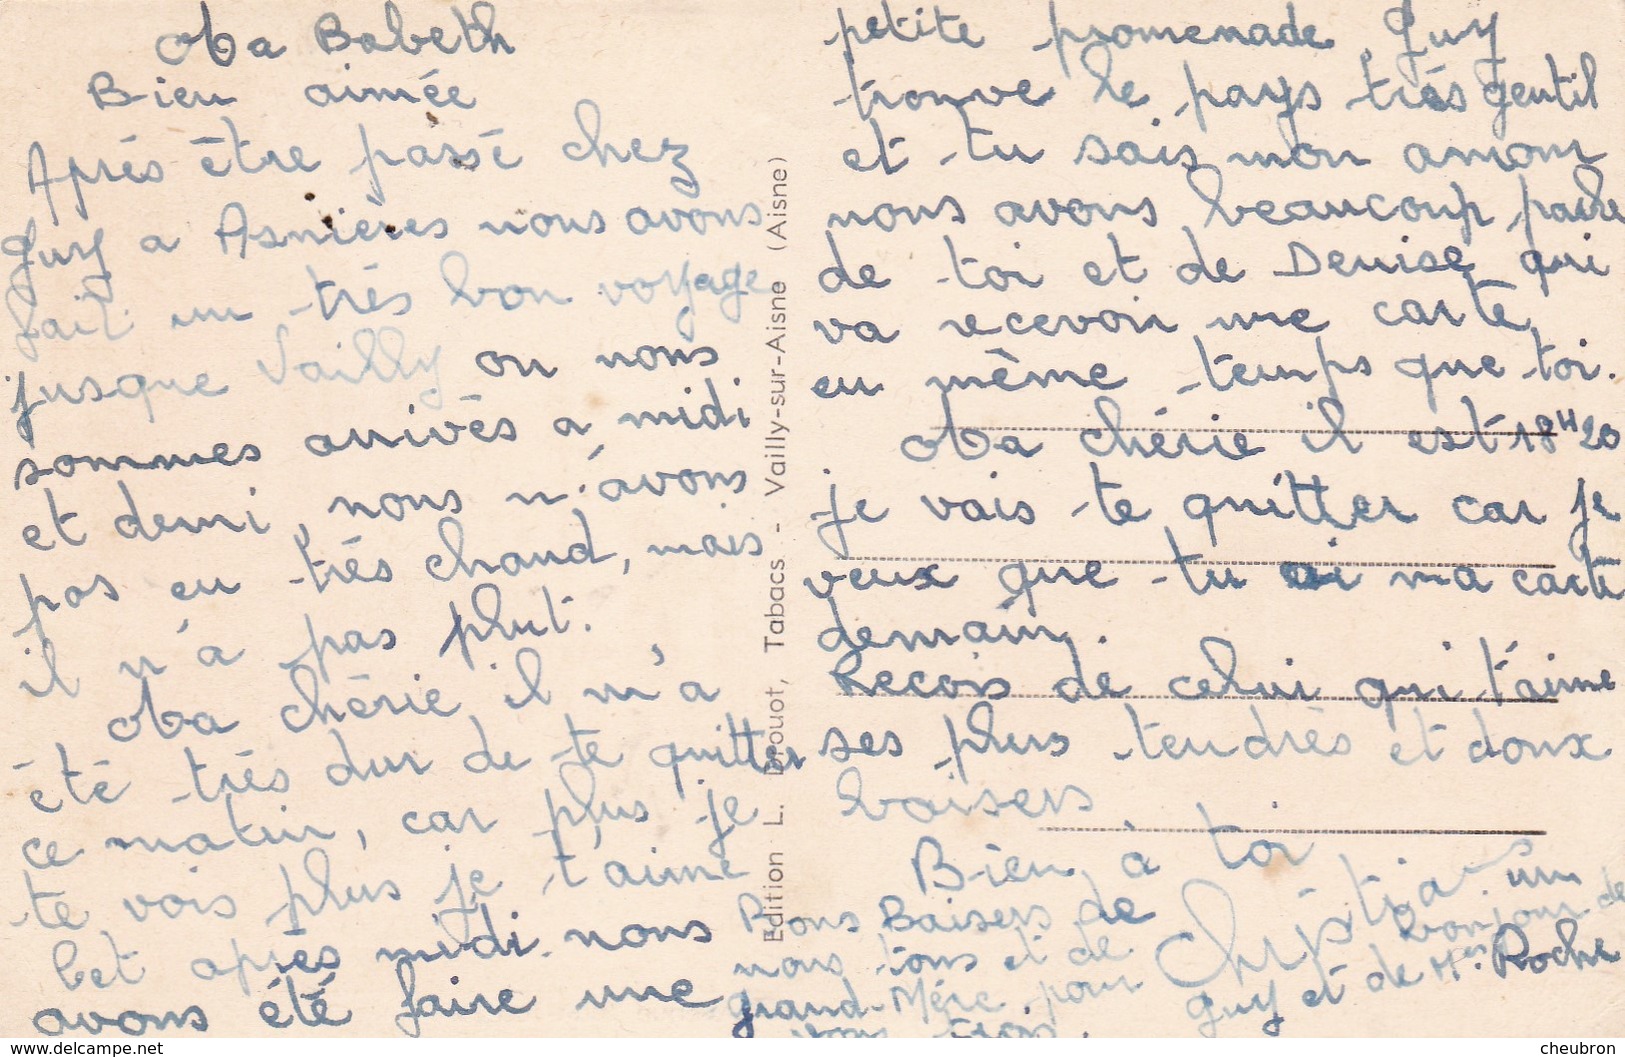 Ma Babeth
Bien aimée
Après être passé chez
Guy a Asnières nous avons
fait un très bon voyage
jusque Vailly ou nous
sommes arrivés a midi
et demi, nous n'avons
pas eu très chaud, mais
il n'a pas plut.
Ma chérie il m'a
été très dur de te quitter
ce matin, car plus je
te vois plus je t'aime
Cet après midi nous
avons été faire une
petite promenade, Guy
trouve le pays très gentil
et tu sais mon amour
nous avons beaucoup parlé
de toi et de Denise qui
va recevoir une carte
en même temps que toi.
Ma chérie il est 18H20
je vais te quitter car je
veux que tu ai ma carte
demain.
Recois de celui qui t'aime
ses plus tendres et doux
baisers
Bien à toi
Christian
Bons Baisers de
nous tous et de
grand-Mère pour
vous trois.
un
bonjour de
Guy et de Mr Roche
Edition L. Drouot, Tabacs - Vailly-sur-Aisne (Aisne)
www.delcampe.net
cheubron